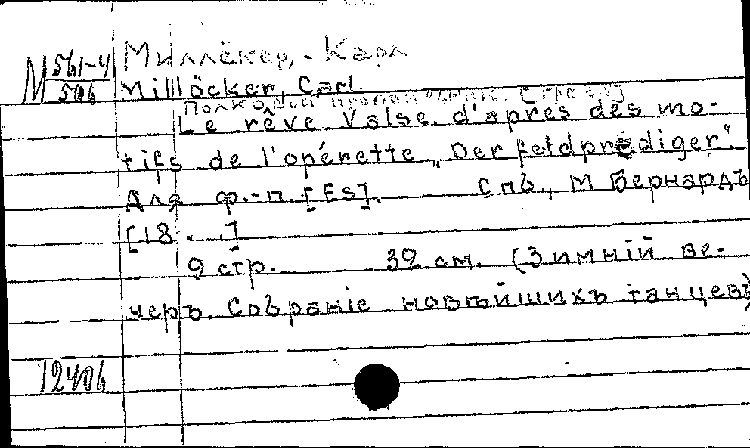 М 561-4
506
Миллёкер, Карл
Millöcker, Carl
Полковой
Le rêve. Valse d'apres des mo-
tifs de l'opérette „Der Feldprediger".
Для ф.-п. [Es]. Спб., М Бернардъ
[18. .]
9 стр. 32 см. (Зимнiй ве-
черъ. Собранiе новѣйшихъ танцевъ)
12406